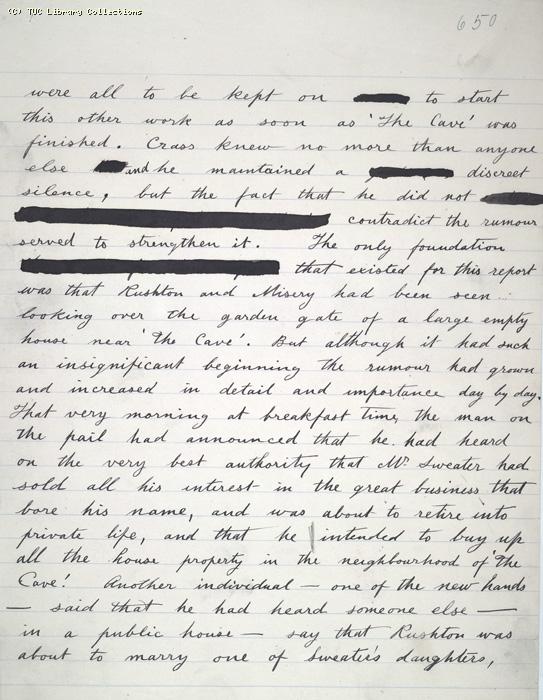 (C) TUC Library Collections
650
were all to be kept on to start
this other work as soon as 'The Cave' was
finished. Crass knew no more than anyone
else and he maintained a discreet
silence, but the fact that he did not
contradict the rumour
served to strengthen it. The only foundation
that existed for this report
was that Rushton and Misery had been seen
looking over the garden gate of a large empty
house near 'The Cave'. But although it had such
an insignificant beginning the rumour had grown
and increased in detail and importance day by day.
That very morning at breakfast time, the man on
the pail had announced that he had heard
on the very best authority that Mr Sweater had
sold all his interest in the great business that
bore his name, and was about to retire into
private life, and that he intended to buy up
all the house property in the neighbourhood of 'The
Cave'. Another individual — one of the new hands
— said that he had heard someone else —
in a public house — say that Rushton was
about to marry one of Sweater's daughters,